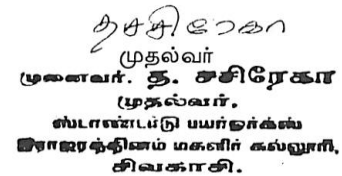 த சசிரேகா
முதல்வர்
முனைவர். த. சசிரேகா
முதல்வர்.
ஸ்டாண்டர்டு பயர்ஒர்க்ஸ்
இராஜரத்தினம் மகளிர் கல்லூரி,
சிவகாசி.